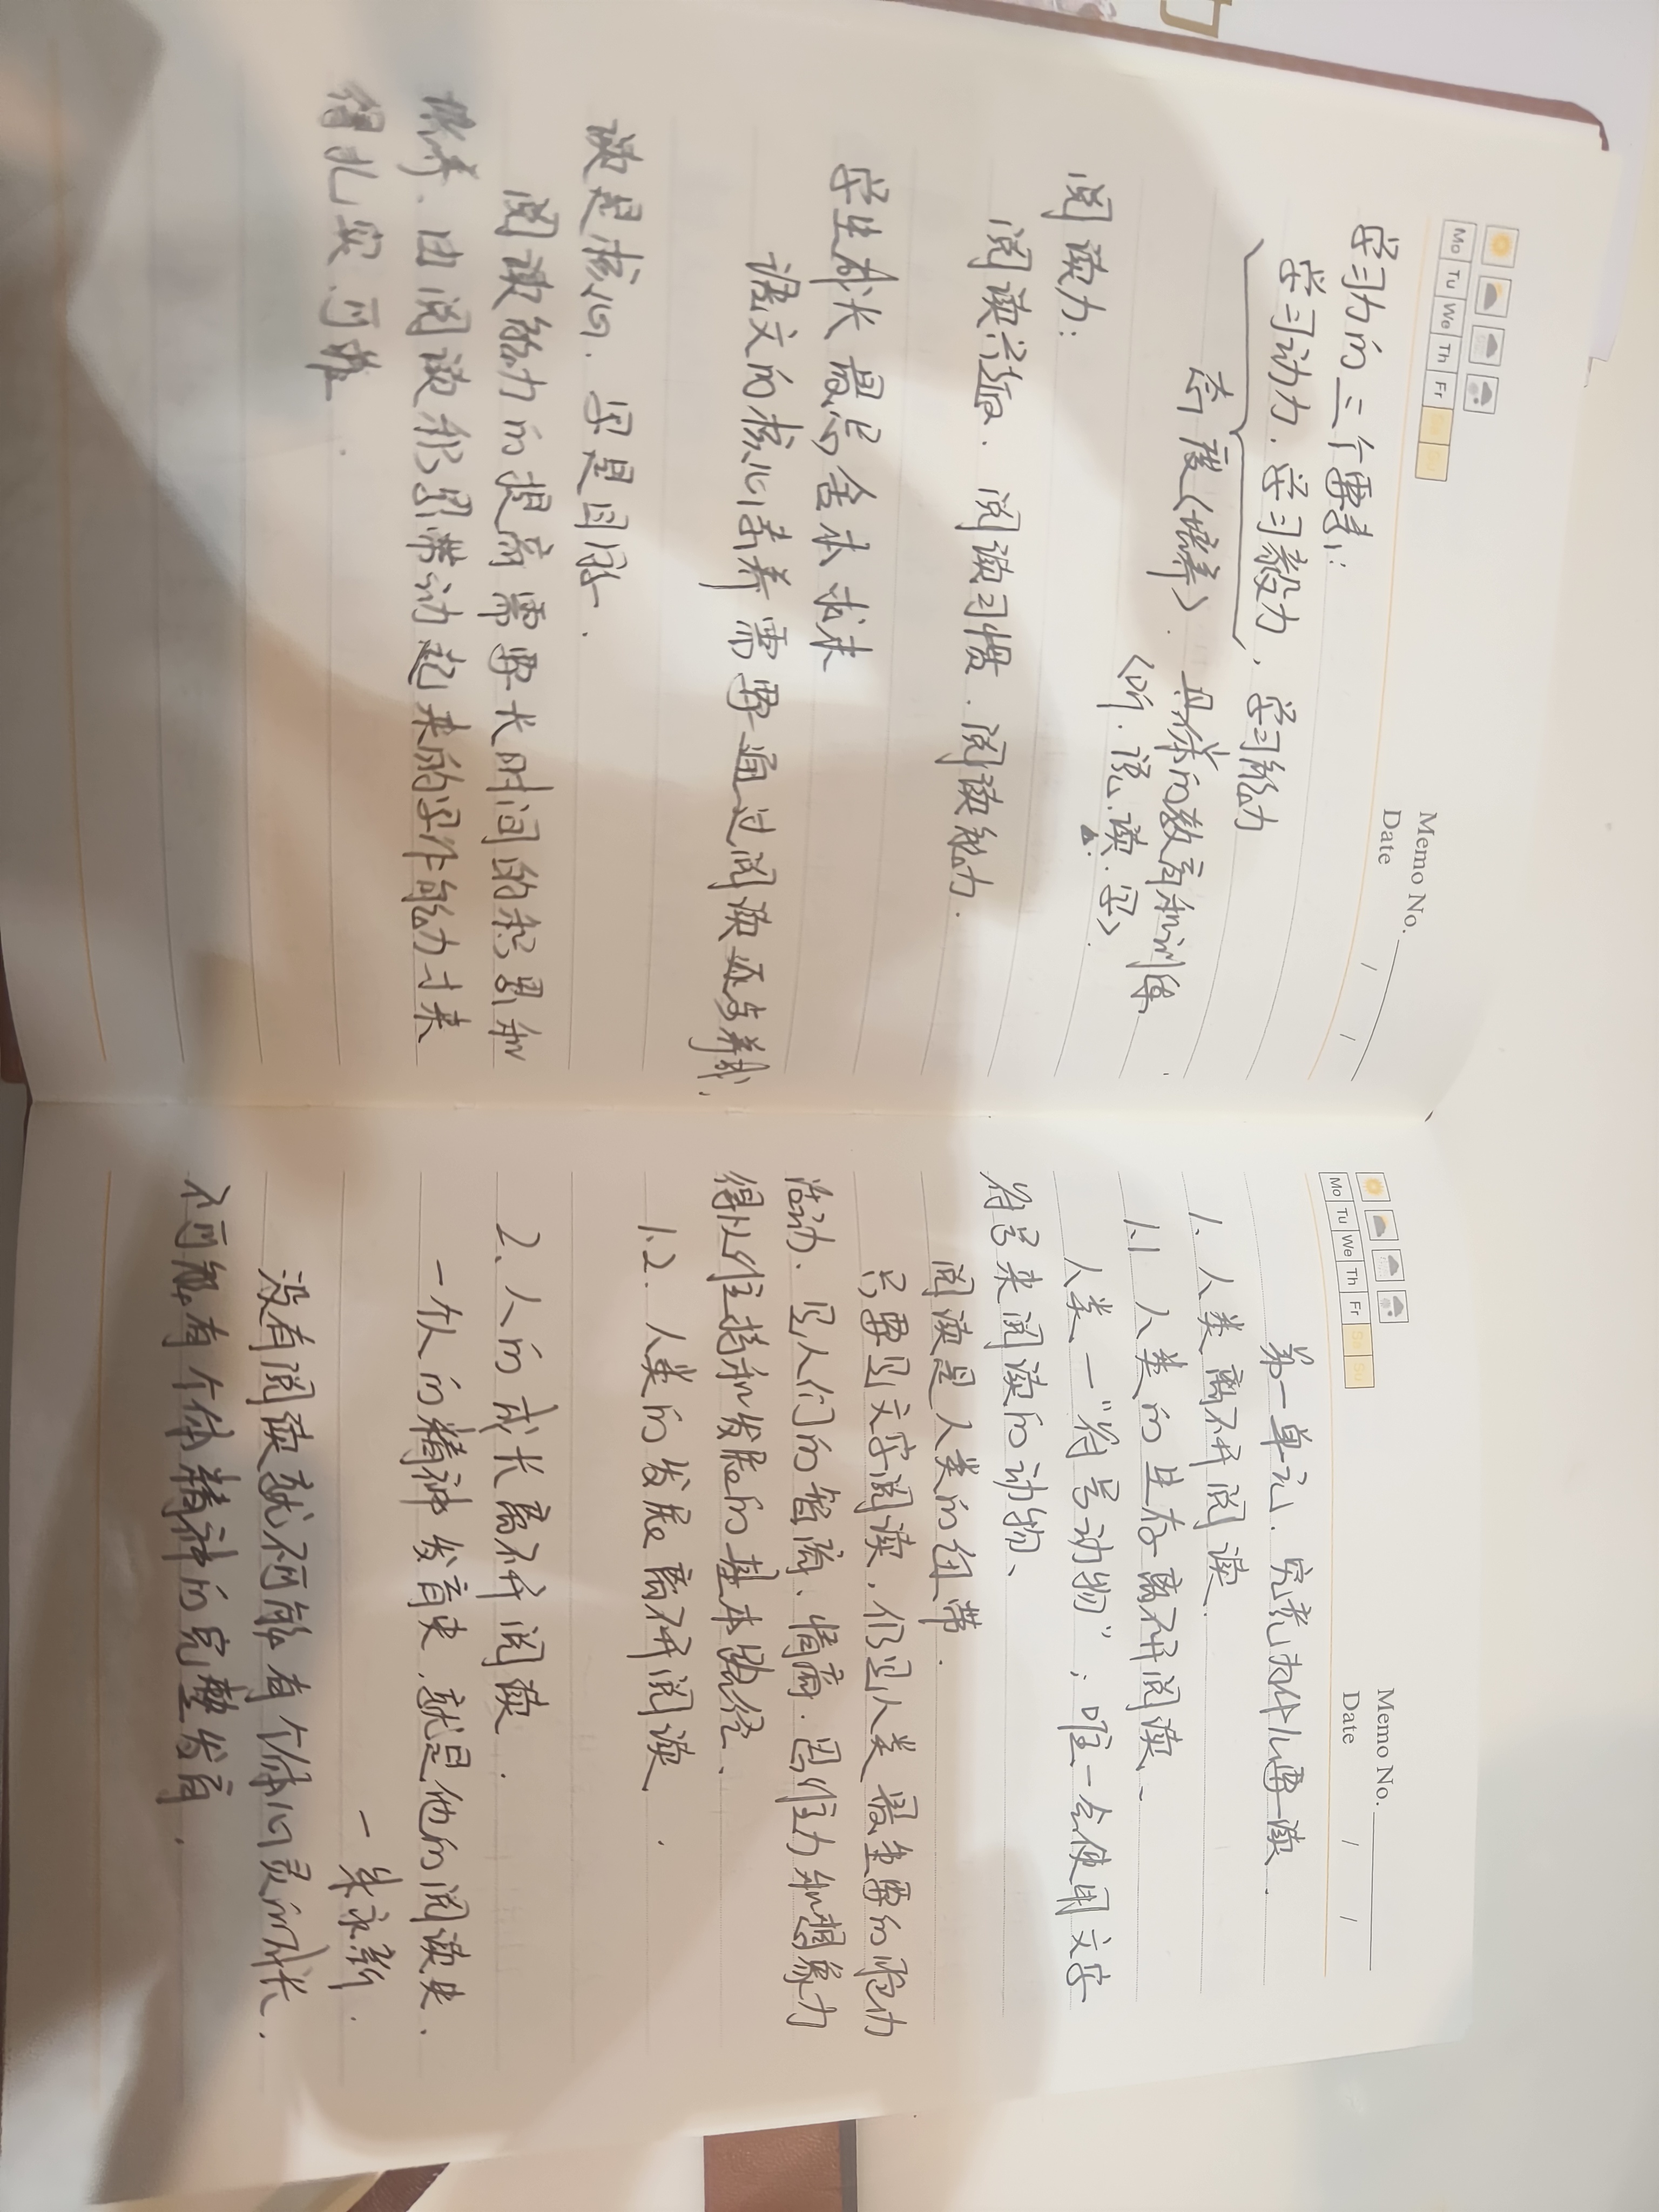 Memo No.
Date / /
Mo Tu We Th Fr Sa Su
学习力的三个要素:
学习动力、学习毅力、学习能力
态度(培养). 具体的教育和训练
(听.说.读.写).
阅读力:
阅读兴趣.阅读习惯.阅读能力.
学生成长最忌舍本求末
语文的核心素养需要通过阅读来养成,
读是核心.写是目的.
阅读能力的提高需要长时间的积累和
培养.由阅读积累带动起来的写作能力才来
得扎实.可靠.
Memo No.
Date / /
Mo Tu We Th Fr Sa Su
第一单元.究竟为什么要读.
1、人类离不开阅读.
1.1 人类的生存离不开阅读、
人类一“符号动物”、唯一会使用文字
符号来阅读的动物、
阅读是人类的纽带.
只要是文字阅读,仍是人类最重要的
活动、是人们的智商、情商.思维力和想象力
得以维持和发展的基本路径、
1.2. 人类的发展离不开阅读.
2、人的成长离不开阅读.
一个人的精神发育史,就是他的阅读史.
一朱永新.
没有阅读就不可能有个体心灵的成长,
不可能有个体精神的完整发育.